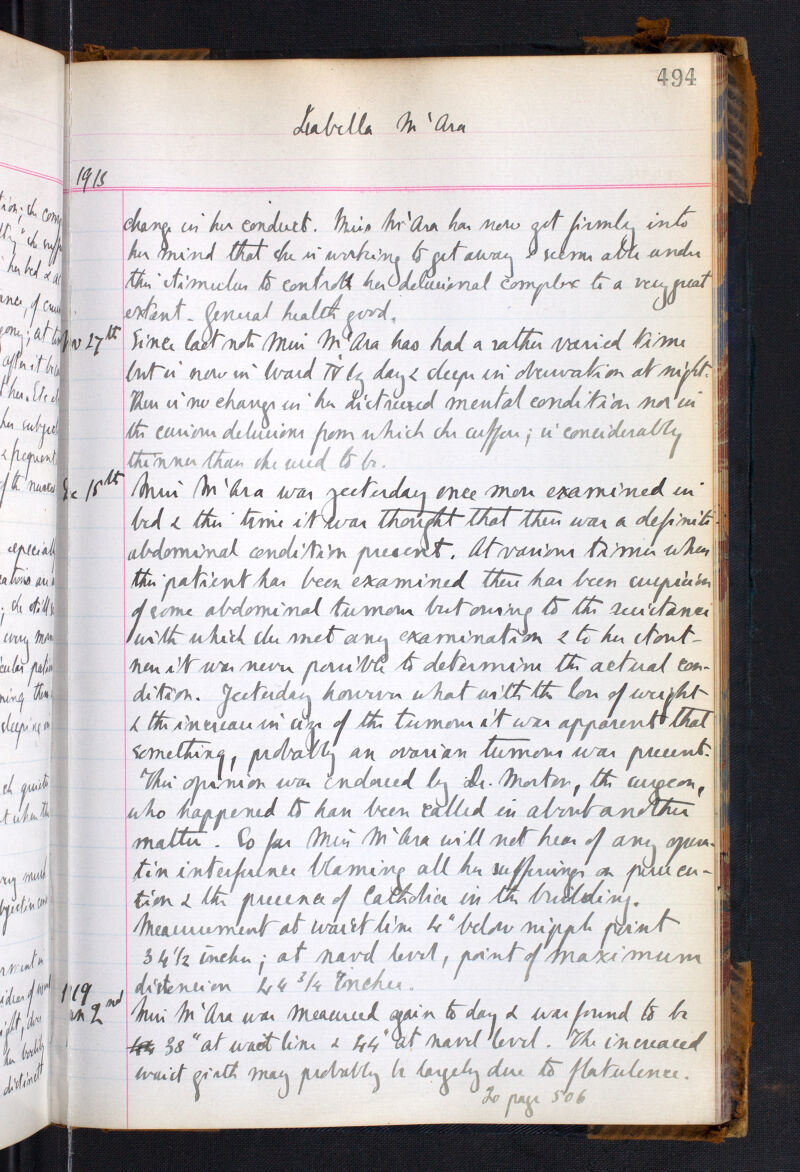 494
Isabella McAra
1918
change in her conduct. Miss McAra has now got firmly into
her mind that she is working to get away & seems able under
this stimulus to control her delusional complex to a very great
extent. General health good.
Nov 27th Since last note Miss McAra has had a rather varied time
but is now in Ward IV by day & sleeps in observation at night.
There is no change in her distressed mental condition nor in
the curious delusions from which she suffers; is considerably
thinner than she used to be.
Dec 15th Miss McAra was yesterday once more examined in
bed & this time it was thought that there was a definite
abdominal condition present. At various times when
this patient has been examined there has been suspicion
of some abdominal tumour but owing to the resistance
with which she met any examination & to her stout-
ness it was never possible to determine the actual con-
dition. Yesterday however what with the loss of weight
& the increase in size of the tumour it was apparent that
something, probably an ovarian tumour was present.
This opinion was endorsed by Dr. Morton, the surgeon,
who happened to have been called in about another
matter. So far Miss McAra will not hear of any opera-
tion interference blaming all her sufferings on persecu-
tion & the presence of Catholics in the building.
Measurement at waist line 4" below nipple point
34 1/2 inches; at navel level, point of maximum
distension 44 3/4 inches.
1919
Jan 2nd Miss McAra was measured again to day & was found to be
38" at waist line & 44" at navel level. The increased
waist girth may probably be largely due to flatulence.
To page 506